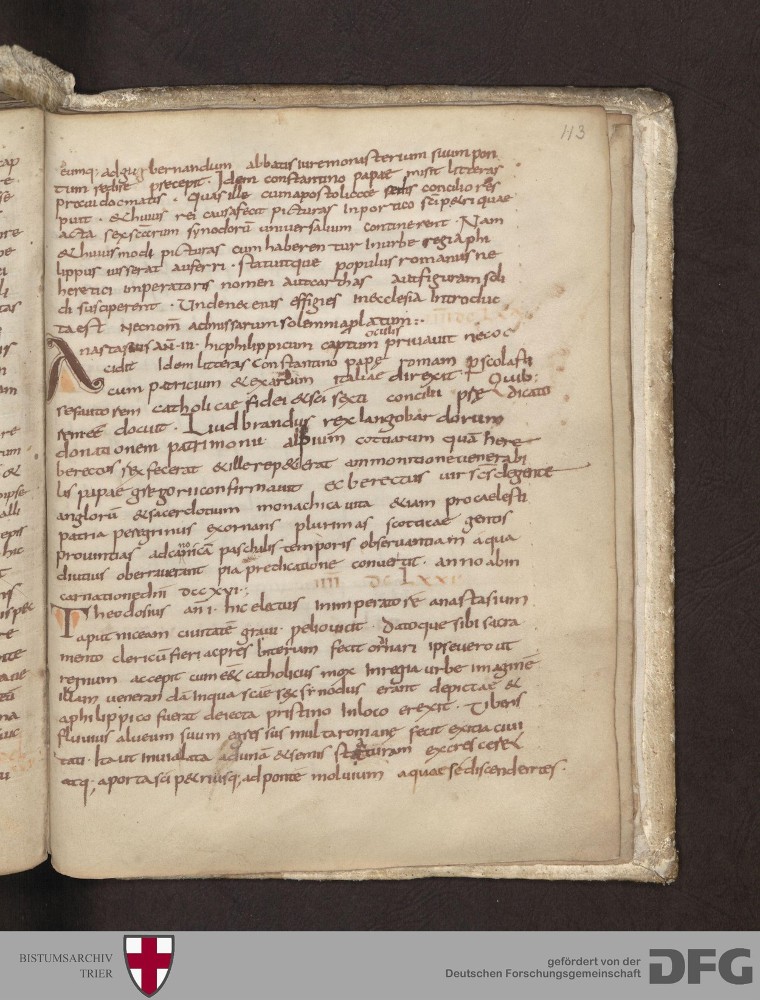 113
eumq; ad gubernandum abbatis iure monasterium suum pon
tum redire precepit. Idem constantino papae misit litteras
pravi docmatis. quas ille cum apostolicae sedis concilio res
puit. & huius rei causa fecit picturas In portico sci petri quae
acta sex scarum synodorū universalium continerent. Nam
& huiusmodi picturas cum haberentur In urbe regia phi
lippus iusserat auferri. statuitque populus romanus ne
heretici imperatoris nomen aut cartas aut figuram soli
di susciperent. Unde nec eius effigies in ecclesia Introduc
ta est nec nom̄ ad missarum solemnia platum:.
Anastasius añ. III. hic philippicum captum oculis privavit nec oc
cidit Idem litteras constantino papae romam p scolasti
cum patricium & exarchum italiae direxit. Quib;
se fautorem catholicae fidei & sci sexti concilii predicato
rem eē docuit. Liudbrandus rex langobardorum
donationem patrimonii alpium cottiarum quā here
berectus rex fecerat & ille repetierat ammonitione venerabi
lis papae gregorii confirmavit ecberectus vir scs de gente
anglorū & sacerdotium monachica vita etiam pro caelesti
patria peregrinus exornans plurimas scoticae gentis
provintias ad canonicā paschalis temporis observantiam a qua
diutius oberraverant pia predicatione convertit. anno ab in
carnatione dni DCCXVI:.
IIII DCLXXII
Theodosius an I. hic electus In imperatorē anastasium
aput niceam civitatē gravi prelio vicit. Datoque sibi sacra
mento clericū fieri ac presbiterum fecit ordinari ipse vero ut
regnum accepit cum eēt catholicus mox In regia urbe imaginē
illam venerandā In qua scae sex synodus erant depictae &
a philippico fuerat deiecta pristino In loco erexit. Tiberis
fluvius alveum suum egressus multa romanae fecit exitia civi
tati. Ita ut In via lata ad unā & semis staturam excresceret
atq; a porta sci petri usq; ad ponte molvium aquae se discendentes.
BISTUMSARCHIV
TRIER
gefördert von der
Deutschen Forschungsgemeinschaft
DFG